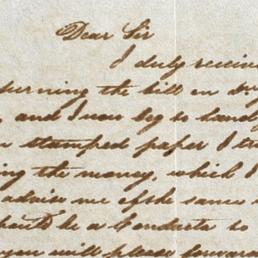 Dear Sir
I duly receiv
urning the bill on
and I now beg to hand
stamped paper I t
ing the money, which I
advise me of the same
hould be a Conducta to
you will please forwar